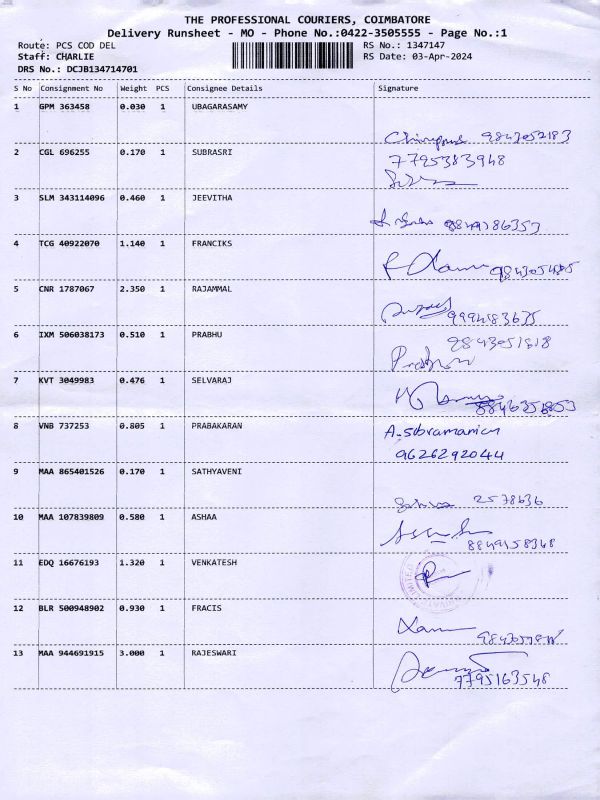 THE PROFESSIONAL COURIERS, COIMBATORE
Delivery Runsheet - MO - Phone No.:0422-3505555 - Page No.:1
Route: PCS COD DEL RS No.: 1347147
Staff: CHARLIE RS Date: 03-Apr-2024
DRS No.: DCJB134714701
S No Consignment No Weight PCS Consignee Details Signature
1 GPM 363458 0.030 1 UBAGARASAMY
9843052183
2 CGL 696255 0.170 1 SUBRASRI 7795383948
3 SLM 343114096 0.460 1 JEEVITHA
4 TCG 40922070 1.140 1 FRANCIKS
5 CNR 1787067 2.350 1 RAJAMMAL
9994183635
6 IXM 506038173 0.510 1 PRABHU 9843051818
7 KVT 3049983 0.476 1 SELVARAJ
8 VNB 737253 0.805 1 PRABAKARAN A.Sibramanian
9626292044
9 MAA 865401526 0.170 1 SATHYAVENI
2578636
10 MAA 107839809 0.580 1 ASHAA
8849158368
11 EDQ 16676193 1.320 1 VENKATESH
12 BLR 500948902 0.930 1 FRACIS
13 MAA 944691915 3.000 1 RAJESWARI
7795163548